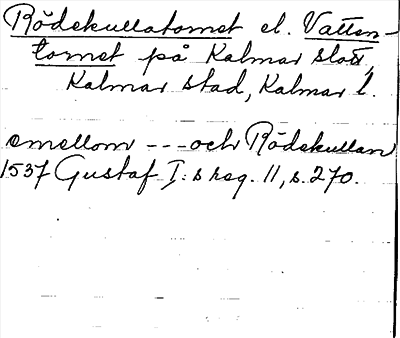 Rödekullatornet el. Vatten-
tornet på Kalmar slott,
Kalmar stad, Kalmar l.
emellom --- och Rödekullan
1537 Gustaf I:s reg. 11, s. 270.